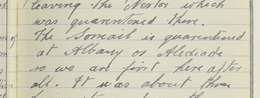 leaving the Nestor which
was quarantined there.
The Somali is quarantined
at Albany or Adelaide
so we are first here after
all. It was about three